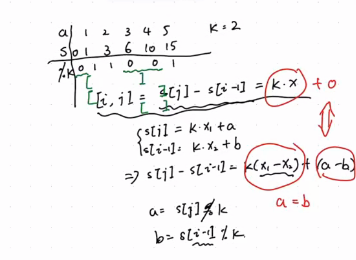 a 1 2 3 4 5 k=2
S 0 1 3 6 10 15
%k 0 1 1 0 0 1
[i, j] = S[j] - S[i-1] = k·x + 0
{ S[j] = k·x₁ + a
S[i-1] = k·x₂ + b
⇒ S[j] - S[i-1] = k(x₁-x₂) + (a-b)
a = b
a = S[j] % k
b = S[i-1] % k